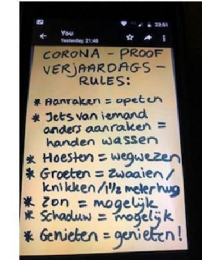 22:51
You
Yesterday, 21:48
CORONA - PROOF
VERJAARDAGS -
RULES:
* Aanraken = opeten
* Iets van iemand
anders aanraken =
handen wassen
* Hoesten = wegwezen
* Groeten = zwaaien/
knikken/1½ meterhug
* Zon = mogelijk
* Schaduw = mogelijk
* Genieten = genieten!